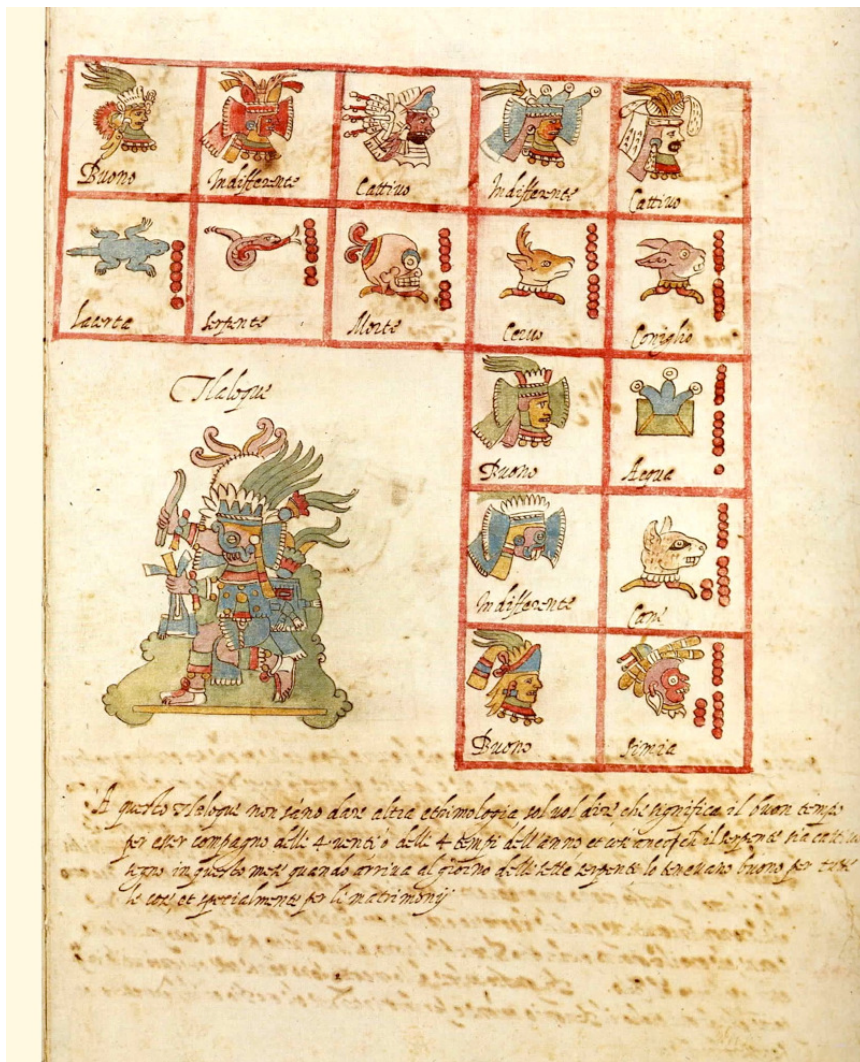 Buono Indifferente Cattivo Indifferente Cattivo
Lacerta Serpente Morte Cervo Coniglio
Tlaloque
Buono Acqua
Indifferente Cane
Buono Simia
A questo Tlaloque non sano dare altra ethimologia sol vol dire che significa il buon tempo
per esser compagno delli 4 venti o delli 4 tempi dell'anno et il serpente sia cattivo
segno in questo mese quando arriva al giorno delli sette serpente lo tenevano buono per tutte
le cose et specialmente per li matrimonij